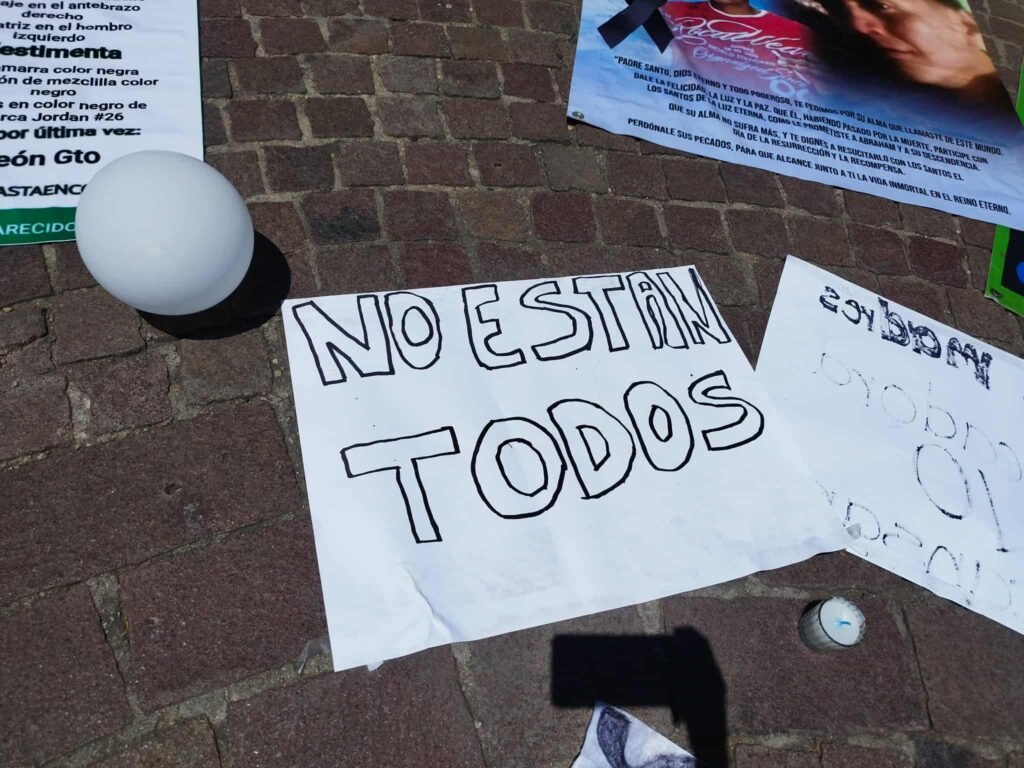 aje en el antebrazo
derecho
atriz en el hombro
izquierdo
estimenta
amarra color negra
ón de mezclilla color
negro
s en color negro de
arca Jordan #26
por última vez:
eón Gto
ASTAENCO
ARECIDO
"PADRE SANTO, DIOS ETERNO Y TODO PODEROSO, TE PEDIMOS POR SU ALMA QUE LLAMASTE DE ESTE MUNDO.
DALE LA FELICIDAD, LA LUZ Y LA PAZ. QUE ÉL, HABIENDO PASADO POR LA MUERTE, PARTICIPE CON
LOS SANTOS DE LA LUZ ETERNA, COMO LE PROMETISTE A ABRAHAM Y A SU DESCENDENCIA.
QUE SU ALMA NO SUFRA MÁS, Y TE DIGNES A RESUCITARLO CON LOS SANTOS EL
DÍA DE LA RESURRECCIÓN Y LA RECOMPENSA.
PERDÓNALE SUS PECADOS, PARA QUE ALCANCE JUNTO A TI LA VIDA INMORTAL EN EL REINO ETERNO.
NO ESTAN
TODOS
madres